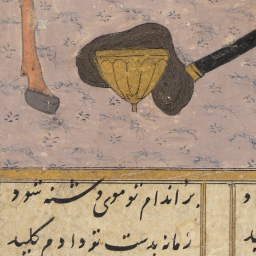 بر اندام تو موی دشنه شود د
زمانه بدست تو داد م کلید ید